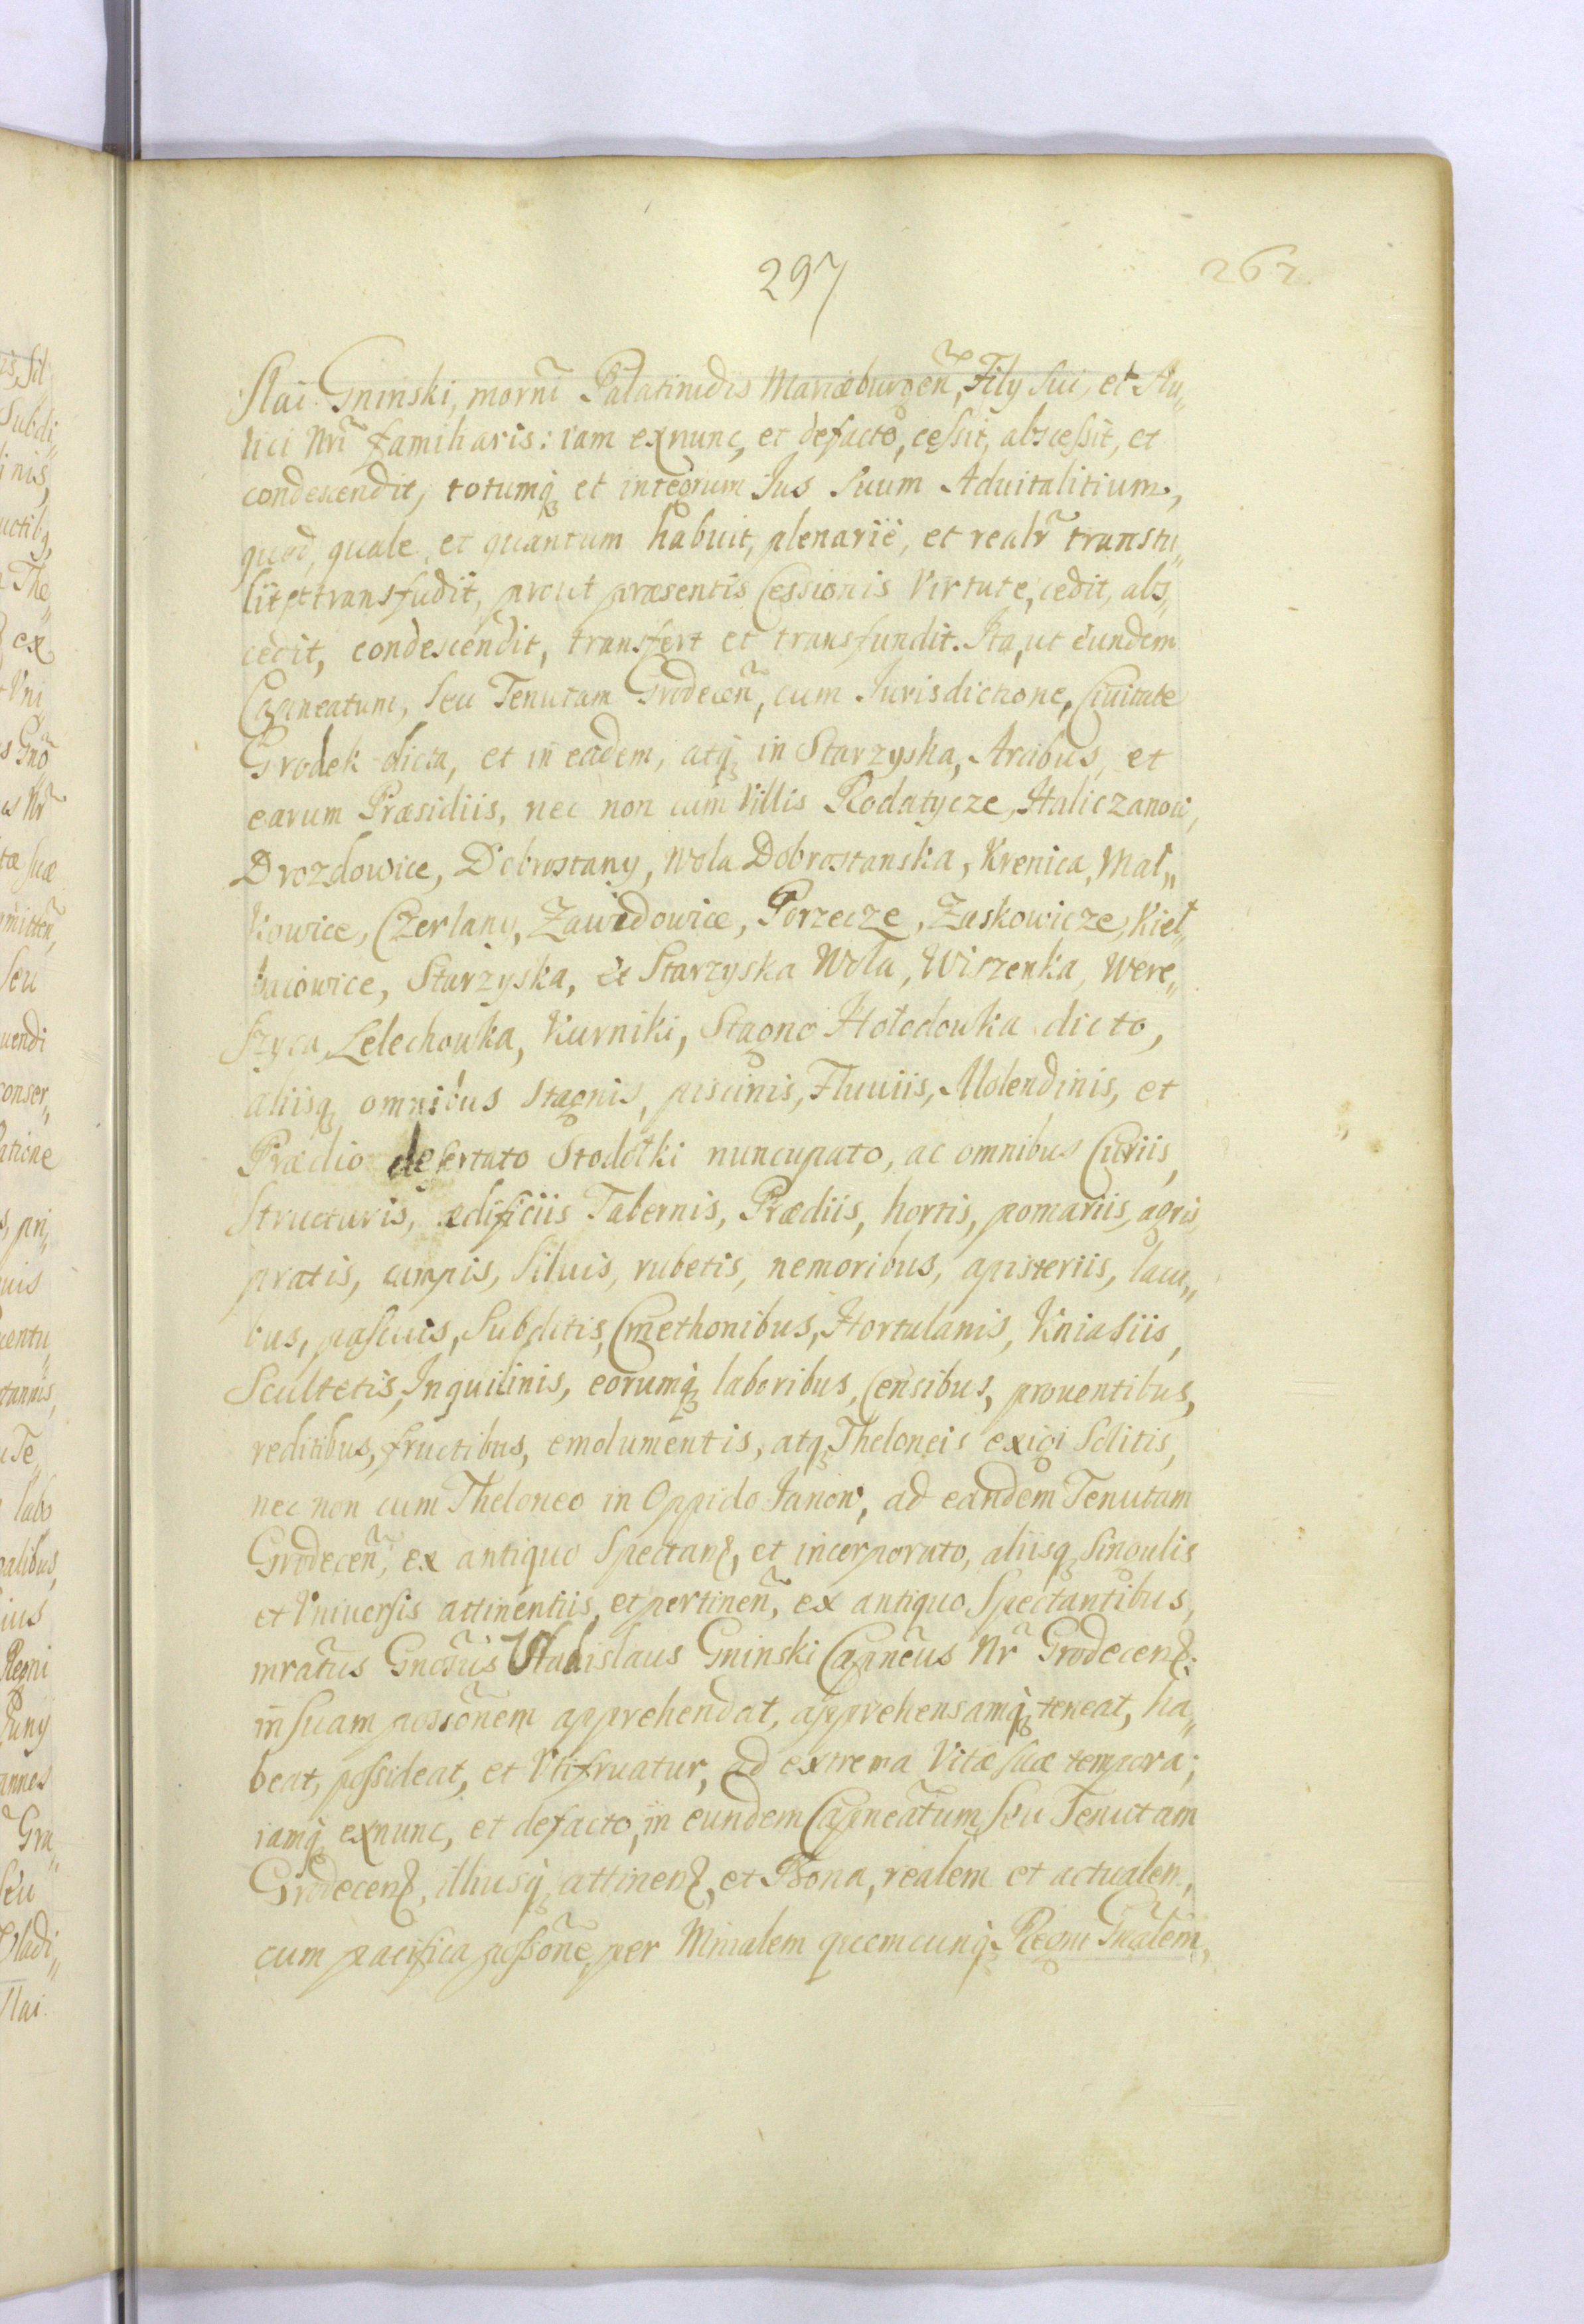 297
267
slai Gninski, morni Palatinidis Mariæburgen, Filij sui, et Au„
lici Nri familiaris: iam exnunc, et defacto, cessit, abscessit, et
condescendit, totumq; et integrum Jus suum Aduitalitium,
quod, quale, et quantum habuit, plenarië, et realr transtu„
lit, et transfudit, prout præsentis Cessionis Virtute, cedit, abs„
cedit, condescendit, transfert et transfundit. Ita, ut eundem
Capneatum, seu Tenutam Grodecen, cum Jurisdictione, Ciuitate
Grodek dicta, et in eadem, atq; in Starzyska, Arcibus, et
earum Præsidiis, nec non cum Villis Rodatycze, Haliczanow,
Drozdowice, Dobrostany, Wola Dobrostanska, Krenica, Mal„
kowice, Czerlany, Zawidowice, Porzecze, Zaskowicze, Kiel„
bacowice, Starzyska, et Starzyska Wola, Wiszenka, Were„
szyca, Lelechowka, Kurniki, Stagno Hołodowka dicto,
aliisq; omnibus Stagnis, piscinis, Fluuiis, Molendinis, et
Prædio desertato Stodołki nuncupato, ac omnibus Curiis,
Structuris, ædificiis Tabernis, Prædiis, hortis, pomariis, agris,
pratis, campis, Siluis, rubetis, nemoribus, apisteriis, lacu„
bus, pascuis, Subditis, Cmethonibus, Hortulanis, Kniasiis,
Scultetis, Inquilinis, eorumq; laboribus, Censibus, prouentibus,
reditibus, fructibus, emolumentis, atq; Theloneis exigi Solitis,
nec non cum Theloneo in Oppido Janow, ad eandem Tenutam
Grodecen, ex antiquo Spectan, et incorporato, aliisq; Singulis
et Vniuersis attinentiis, et pertinen, ex antiquo Spectantibus,
mratus Gnosus Vladislaus Gninski Capneus Nr Grodecen:
in suam possonem apprehendat, apprehensamq; teneat, ha„
beat, possideat, et Vtifruatur, ad extrema Vitæ suæ tempora;
iamq; exnunc, et defacto, in eundem Capneatum seu Tenutam
Grodecen, illiusq; attinen, et Bona, realem et actualem,
cum pacifica possone, per Mnialem quemcunq; Regni Gnalem,